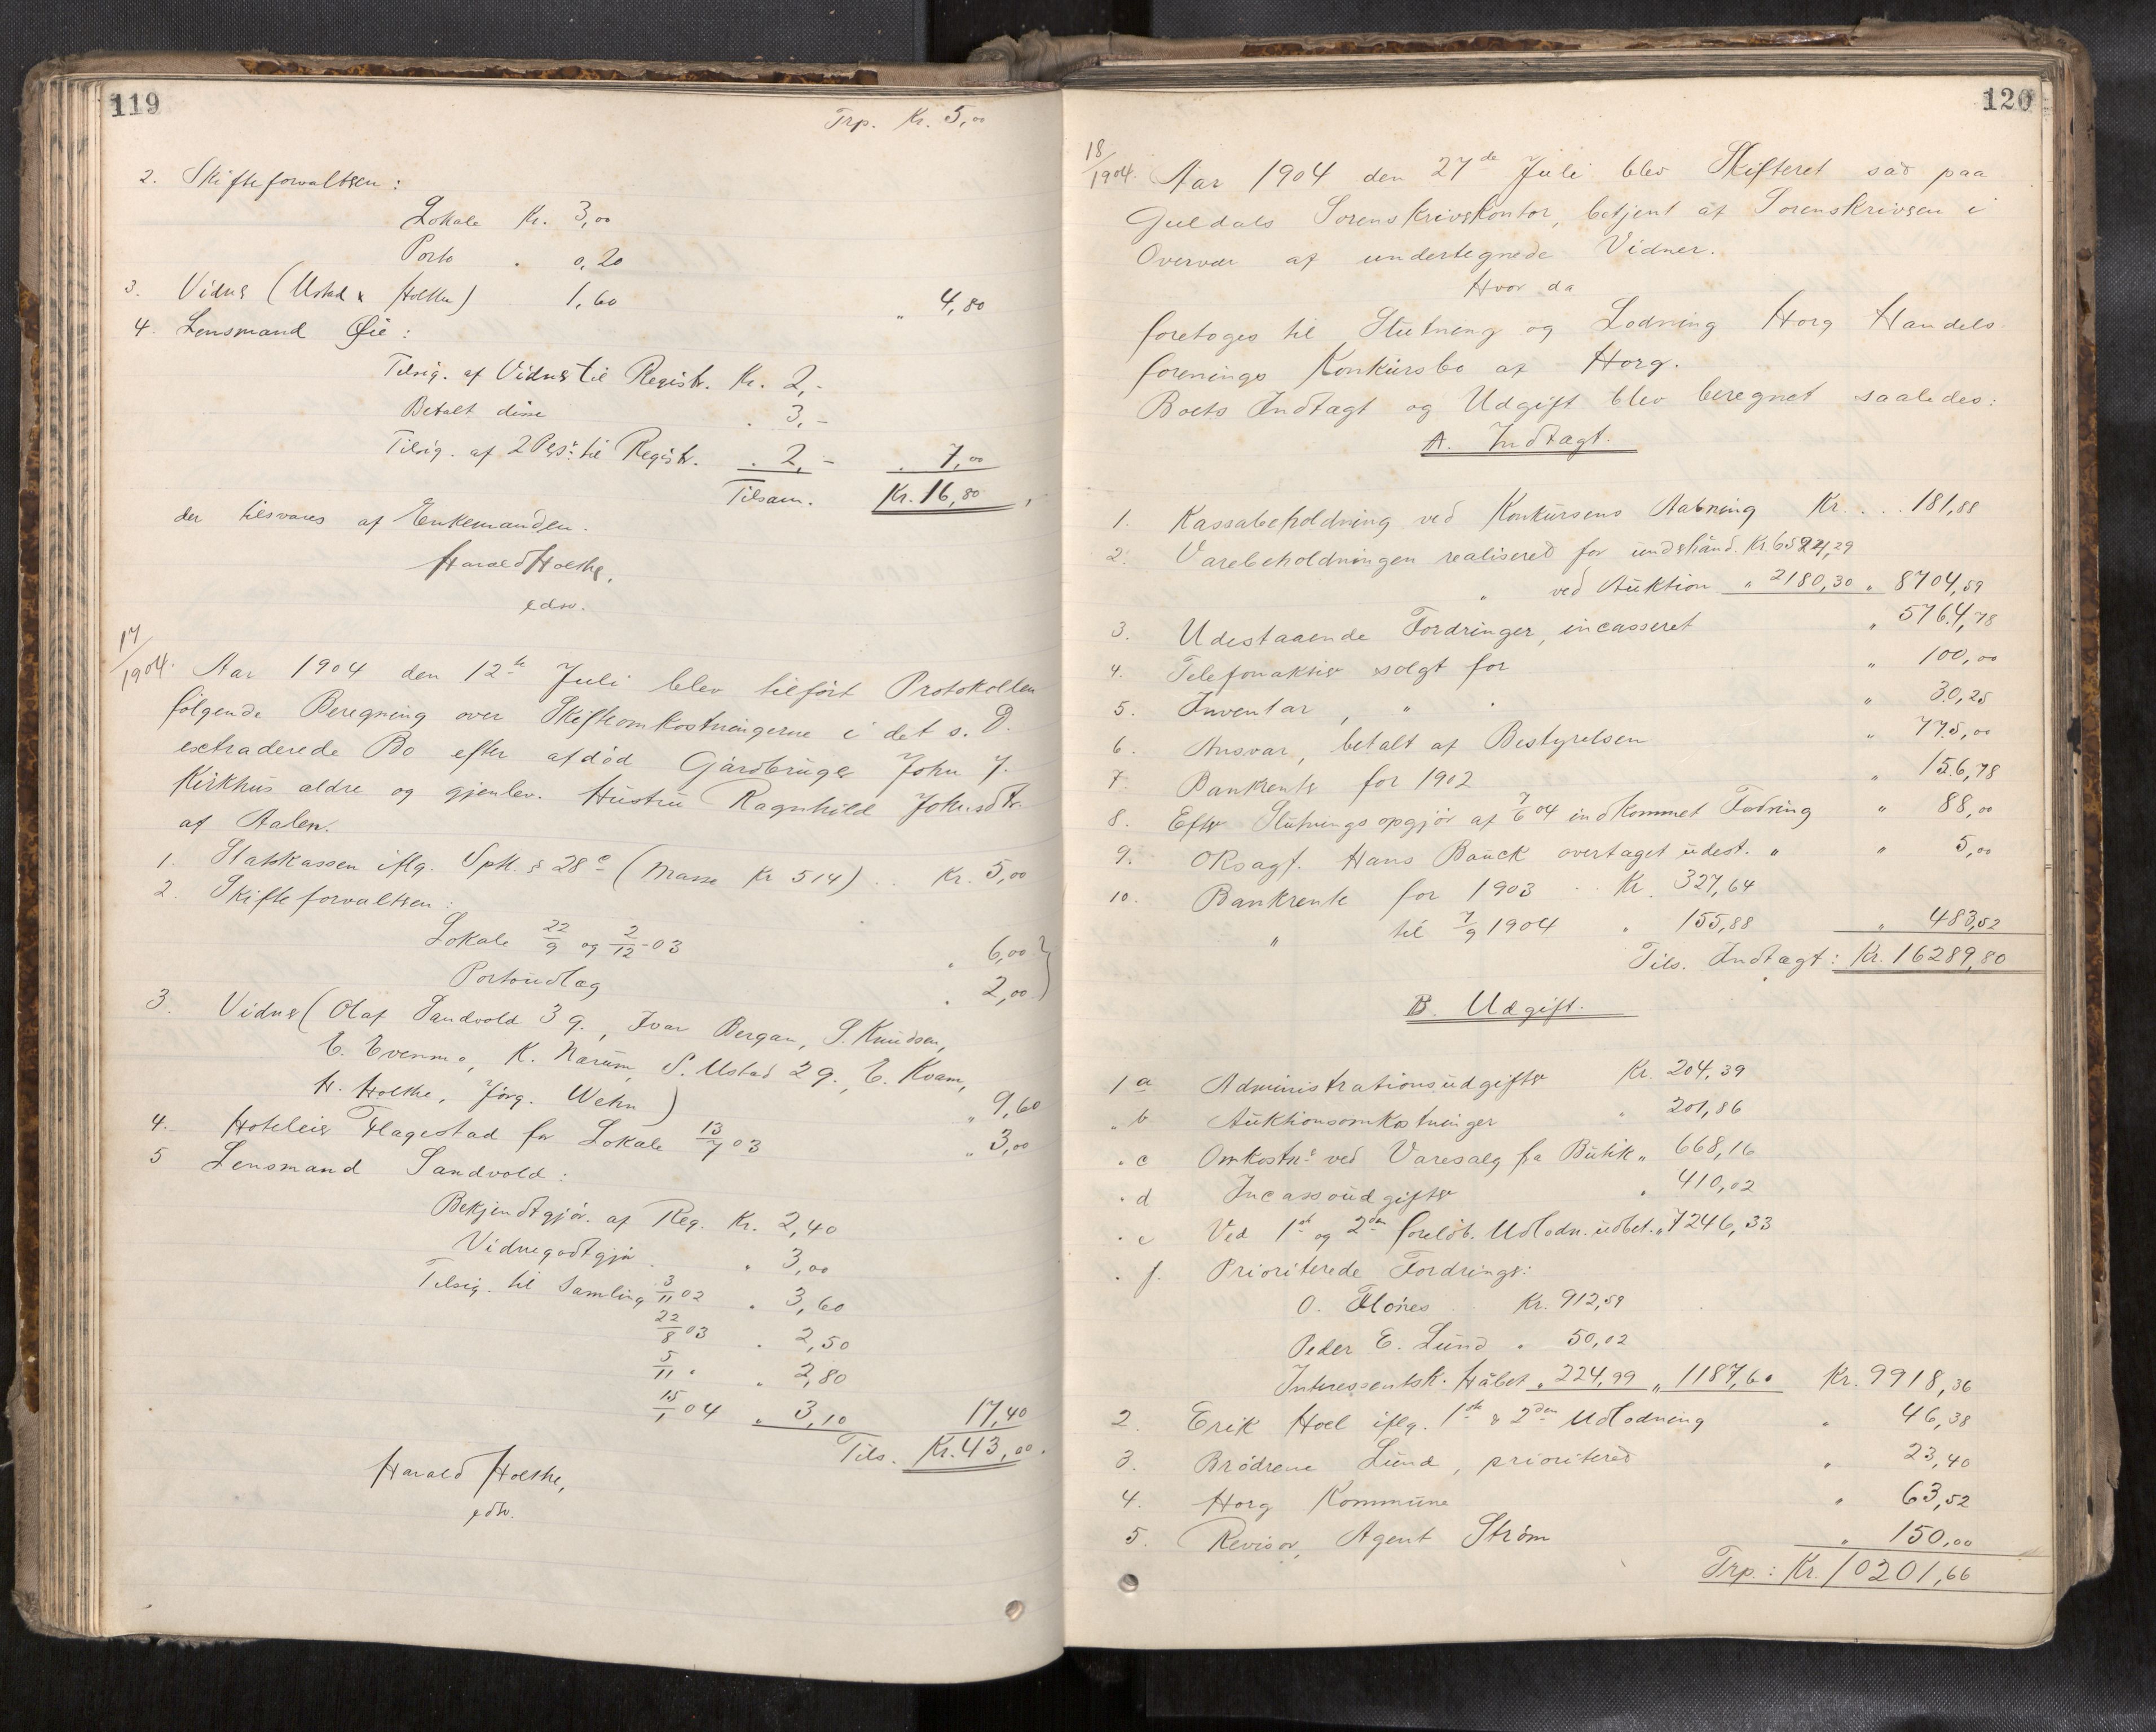 119
Trp. Kr. 5,00
2. Skifteforvalteren:
Lokale Kr. 3,00
Porto " 0,20
3. Vidner (Ustad & Holthe) 1,60 " 4,80
4. Lensmand Øie:
Tilsig. af Vidner til Registr. Kr. 2,-
Betalt disse " 3,-
Tilsig. af 2 Pers: til Registr. " 2,- " 7,00
Tilsam. Kr. 16,80,
der tilsvares af Enkemanden.
Harald Holthe,
edsv.
17/1904.
Aar 1904 den 12te Juli blev tilført Protokollen
følgende Beregning over Skifteomkostningerne i det s. D.
extraderede Bo efter afdød Gårdbruger John J.
Kirkhus ældre og gjenlev. Hustru Ragnhild Johnsdtr.
af Aalen.
1. Statskassen iflg. Sptl. § 28 c (Masse Kr 514) .. Kr. 5,00
2. Skifteforvalteren:
Lokale 22/9 og 2/12-03 " 6,00 }
Portoudlæg " 2,00 }
3. Vidner (Olaf Sandvold 3 g., Ivar Bergan, S. Knudsen,
E. Evenmo, K. Narum, S. Ustad 2 g., E. Kvam,
H. Holthe, Jørg. Wehn) " 9,60
4. Hoteleier Flagestad for Lokale 13/7 03 " 3,00
5 Lensmand Sandvold:
Bekjendtgjør. af Reg. Kr. 2,40
Vidnegodtgjør. " 3,00
Tilsig. til Samling 3/11 02 " 3,60
22/8 03 " 2,50
5/11 " " 2,80
15/1 04 " 3,10 17,40
Tils. Kr. 43,00.
Harald Holthe,
edsv.
120
18/1904.
Aar 1904 den 27de Juli blev Skifteret sat paa
Guldals Sorenskriverkontor, betjent af Sorenskriveren i
Overvær af undertegnede Vidner.
Hvor da
foretoges til Slutning og Lodning Horg Handels
forenings Konkursbo af Horg.
Boets Indtægt og Udgift blev beregnet saaledes:
A. Indtægt.
1. Kassabeholdning ved Konkursens Aabning Kr. . . 181,88
2. Varebeholdningen realiseret for underhånd. Kr. 6524,29
" ved Auktion " 2180,30 " 8704,59
3. Udestaaende Fordringer, incasseret " 5764,78
4. Telefonaktier solgt for " 100,00
5. Inventar, " " " 30,25
6. Ansvar, betalt af Bestyrelsen " 775,00
7. Bankrente for 1902 " 156,78
8. Efter Slutningsopgjør af 7/6 04 indkommet Fordring " 88,00
9. ORsagf. Hans Bauck overtaget udest. " " 5,00
10. Bankrente for 1903 .. Kr. 327,64
" til 7/9 1904 " 155,88 " 483,52
Tils. Indtægt: Kr. 16289,80
B. Udgift.
1 a Administrationsudgifter Kr. 204,39
" b Auktionsomkostninger " 201,86
" c Omkostn: ved Varesalg fra Butik " 668,16
" d Incassoudgifter " 410,02
" e Ved 1st og 2den foreløb. Udlodn. udbet. " 7246,33
" f. Prioriterede Fordringer:
O. Flønes .. Kr. 912,59
Peder E. Lund " 50,02
Interessentsk. Håbet " 224,99 " 1187,60 Kr. 9918,36
2. Erik Hoel iflg. 1ste & 2den Udlodning " 46,38
3. Brødrene Lund, prioriteret " 23,40
4. Horg Kommune " 63,52
5. Revisor, Agent Strøm " 150,00
Trp.: Kr. 10201,66